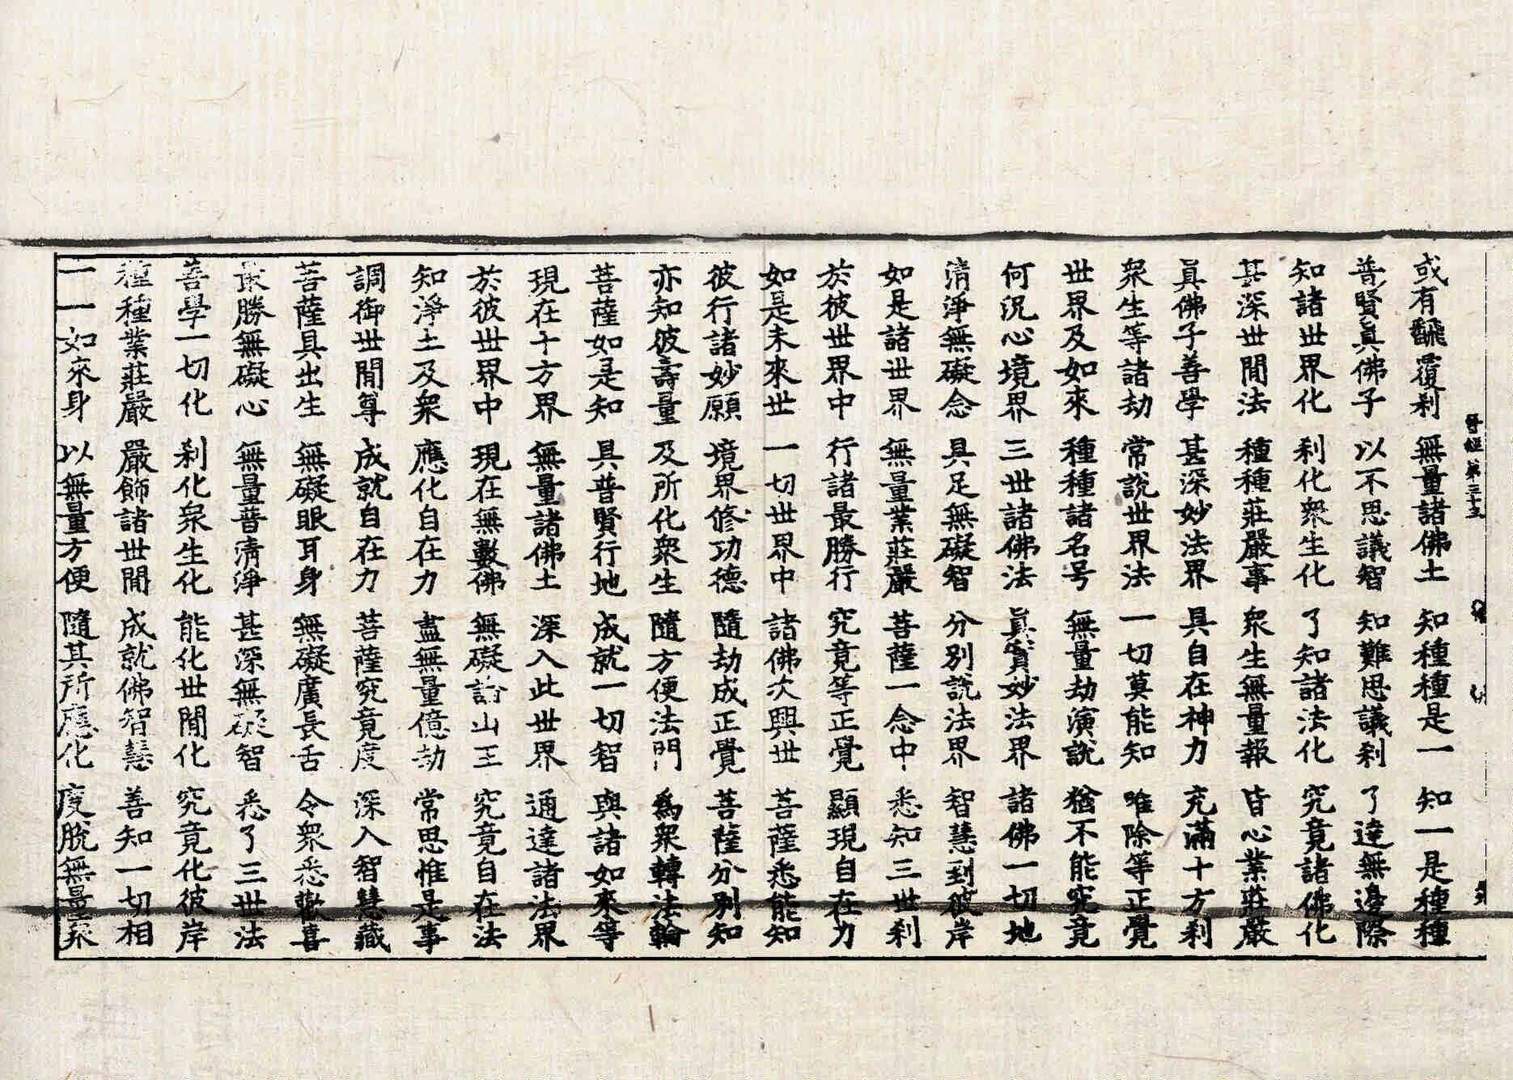 晉經第三十五
或有翻覆刹 無量諸佛土 知種種是一 知一是種種
普賢眞佛子 以不思議智 知難思議刹 了達無邊際
知諸世界化 刹化衆生化 了知諸法化 究竟諸佛化
甚深世閒法 種種莊嚴事 衆生無量報 皆心業莊嚴
眞佛子善學 甚深妙法界 具自在神力 充滿十方刹
衆生等諸劫 常說世界法 一切莫能知 唯除等正覺
世界及如來 種種諸名号 無量劫演說 猶不能究竟
何況心境界 三世諸佛法 眞實妙法界 諸佛一切地
淸淨無礙念 具足無礙智 分別說法界 智慧到彼岸
如是諸世界 無量業莊嚴 菩薩一念中 悉知三世刹
於彼世界中 行諸最勝行 究竟等正覺 顯現自在力
如是未來世 一切世界中 諸佛次興世 菩薩悉能知
彼行諸妙願 境界修功德 隨劫成正覺 菩薩分別知
亦知彼壽量 及所化衆生 隨方便法門 爲衆轉法輪
菩薩如是知 具普賢行地 成就一切智 與諸如來等
現在十方界 無量諸佛土 深入此世界 通達諸法界
於彼世界中 現在無數佛 無礙論山王 究竟自在法
知淨土及衆 應化自在力 盡無量億劫 常思惟是事
調御世閒尊 成就自在力 菩薩究竟度 深入智慧藏
菩薩具出生 無礙眼耳身 無礙廣長舌 令衆悉歡喜
最勝無礙心 無量普清淨 甚深無礙智 悉了三世法
善學一切化 刹化衆生化 能化世閒化 究竟化彼岸
種種業莊嚴 嚴飾諸世閒 成就佛智慧 善知一切相
一一如來身 以無量方便 隨其所應化 度脫無量衆